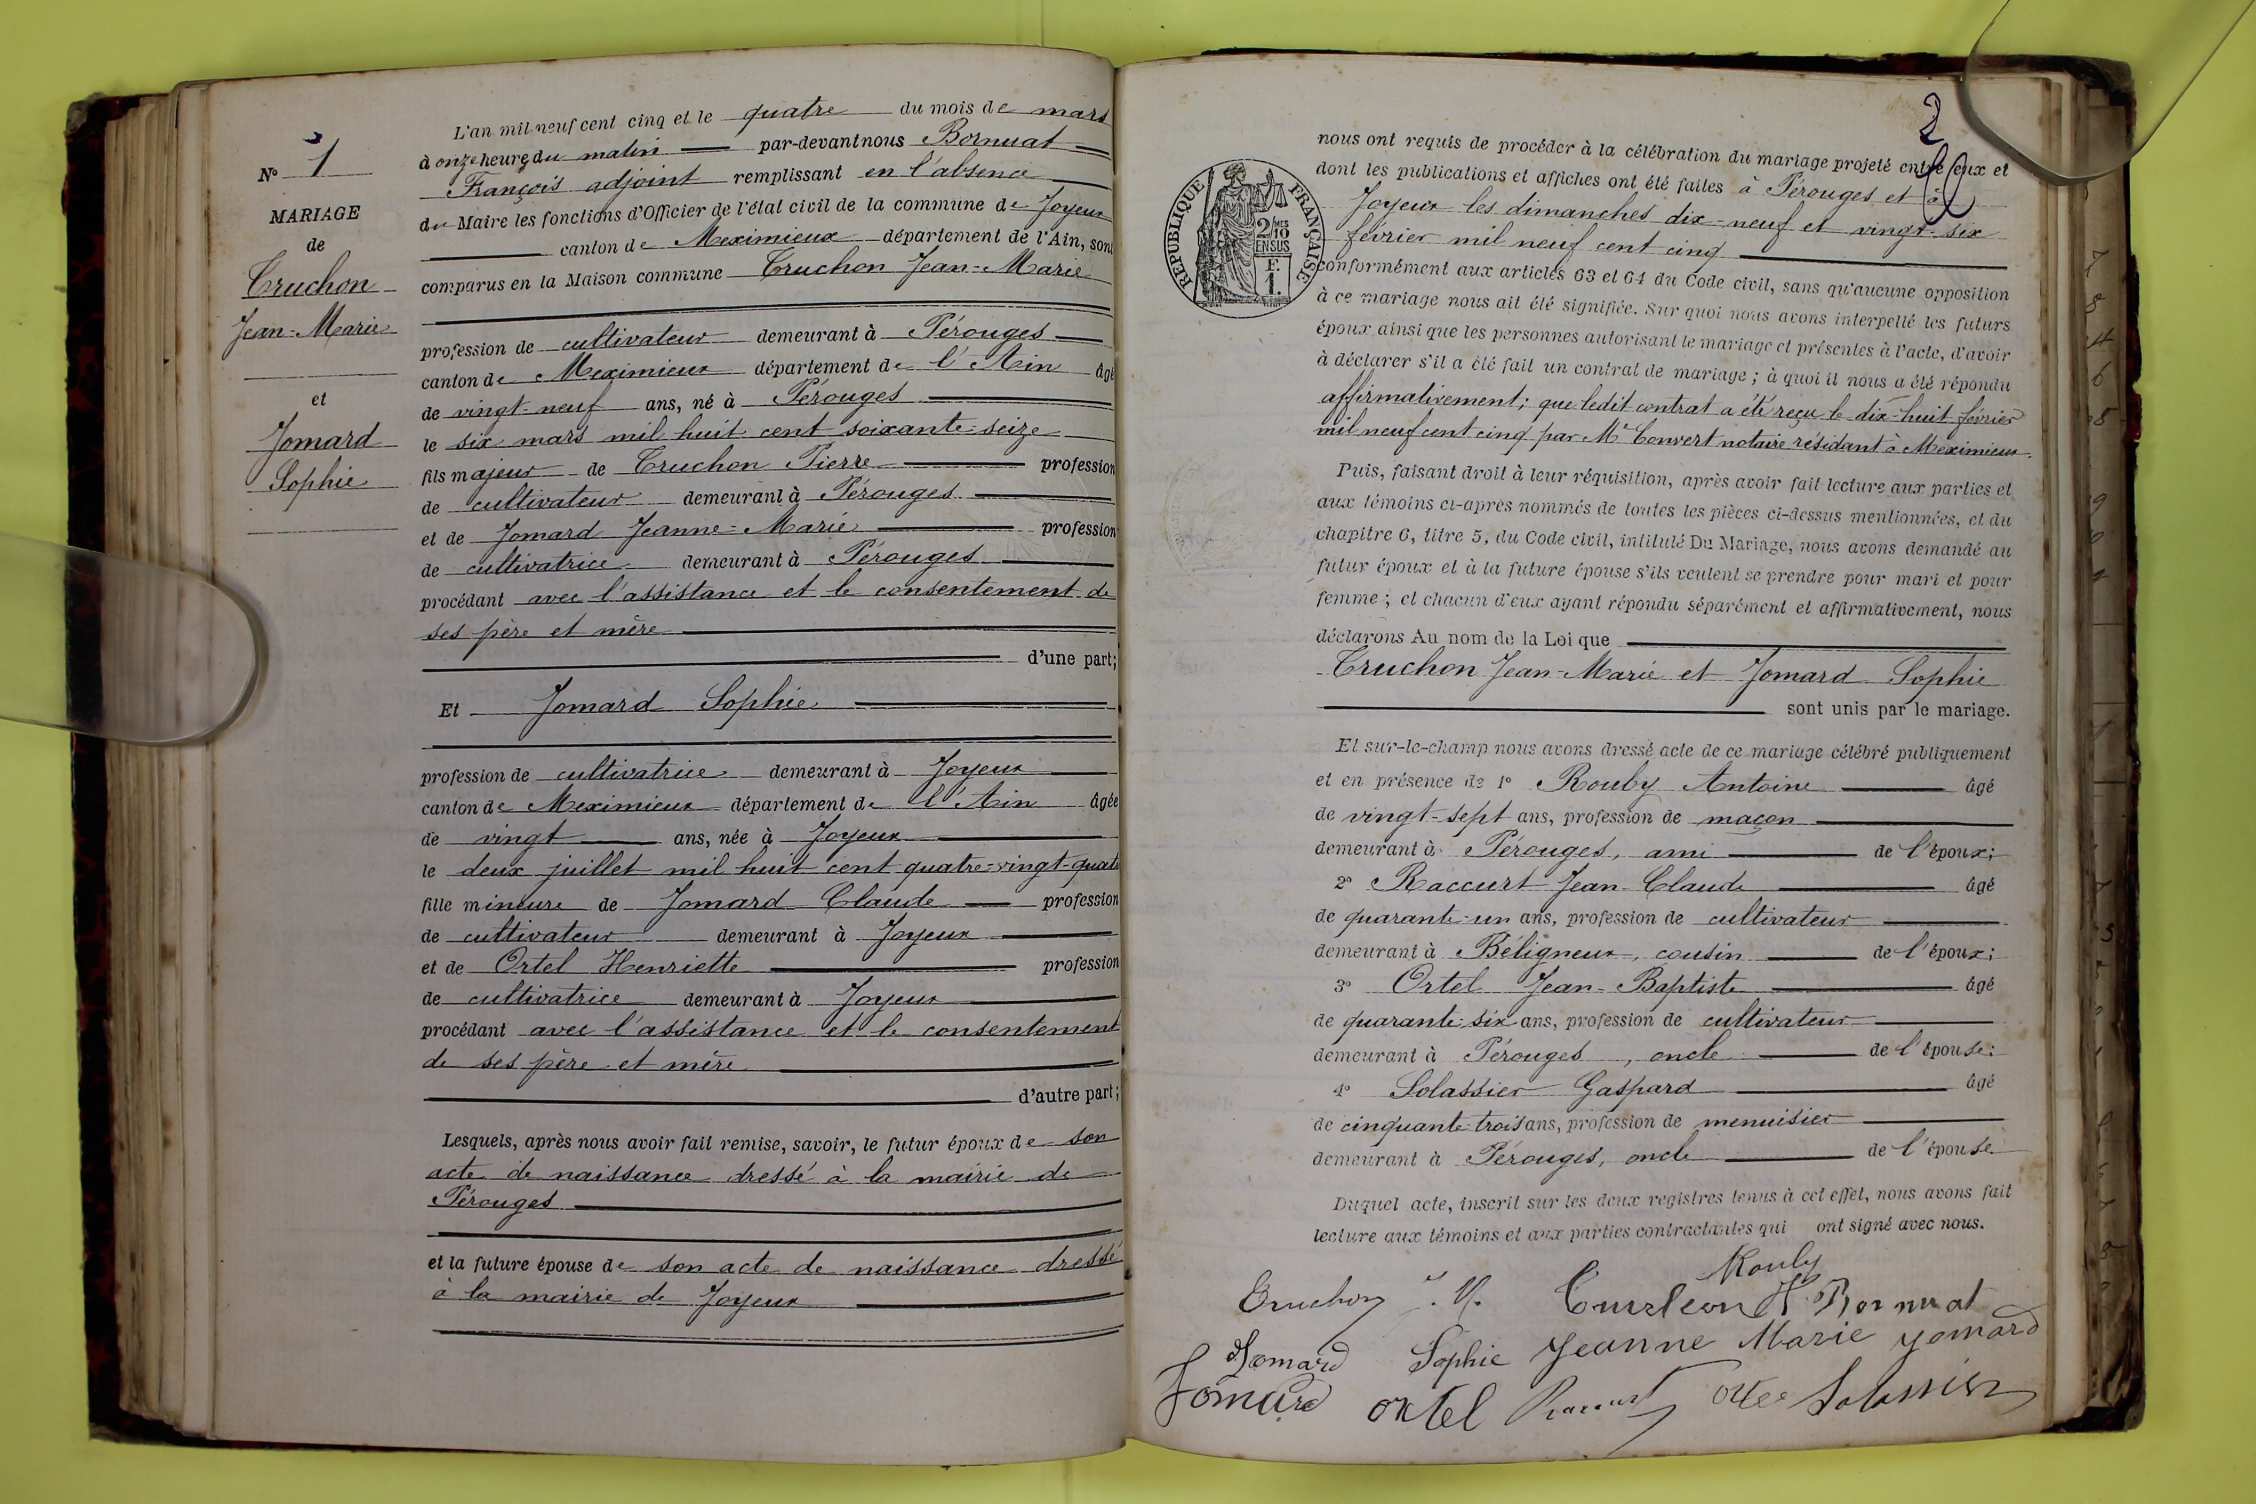 N° 1
MARIAGE
de
Truchon
Jean-Marie
et
Jomard
Sophie
L'an mil neuf cent cinq et le quatre du mois de mars
à onze heures du matin par-devant nous Bornuat
François adjoint remplissant en l'absence
du Maire les fonctions d'Officier de l'état civil de la commune de Joyeux
canton de Meximieux département de l'Ain, sont
comparus en la Maison commune Truchon Jean-Marie
profession de cultivateur demeurant à Pérouges
canton de Meximieux département de l'Ain âgé
de vingt-neuf ans, né à Pérouges
le six mars mil huit cent soixante-seize
fils majeur de Truchon Pierre profession
de cultivateur demeurant à Pérouges
et de Jomard Jeanne-Marie profession
de cultivatrice demeurant à Pérouges
procédant avec l'assistance et le consentement de
ses père et mère
d'une part;
Et Jomard Sophie
profession de cultivatrice demeurant à Joyeux
canton de Meximieux département de l'Ain âgée
de vingt ans, née à Joyeux
le deux juillet mil huit cent quatre-vingt-quatre
fille mineure de Jomard Claude profession
de cultivateur demeurant à Joyeux
et de Ortel Henriette profession
de cultivatrice demeurant à Joyeux
procédant avec l'assistance et le consentement
de ses père et mère
d'autre part;
Lesquels, après nous avoir fait remise, savoir, le futur époux de son
acte de naissance dressé à la mairie de
Pérouges
et la future épouse de son acte de naissance dressé
à la mairie de Joyeux
2
RÉPUBLIQUE FRANÇAISE
2/10 MES
EN SUS
F.
1.
nous ont requis de procéder à la célébration du mariage projeté entre eux et
dont les publications et affiches ont été faites à Pérouges et à
Joyeux les dimanches dix-neuf et vingt-six
février mil neuf cent cinq
conformément aux articles 63 et 64 du Code civil, sans qu'aucune opposition
à ce mariage nous ait été signifiée. Sur quoi nous avons interpellé les futurs
époux ainsi que les personnes autorisant le mariage et présentes à l'acte, d'avoir
à déclarer s'il a été fait un contrat de mariage; à quoi il nous a été répondu
affirmativement; que ledit contrat a été reçu le dix-huit février
mil neuf cent cinq par Me Convert notaire résidant à Meximieux.
Puis, faisant droit à leur réquisition, après avoir fait lecture aux parties et
aux témoins ci-après nommés de toutes les pièces ci-dessus mentionnées, et du
chapitre 6, titre 5, du Code civil, intitulé Du Mariage, nous avons demandé au
futur époux et à la future épouse s'ils veulent se prendre pour mari et pour
femme; et chacun d'eux ayant répondu séparément et affirmativement, nous
déclarons Au nom de la Loi que
Truchon Jean-Marie et Jomard Sophie
sont unis par le mariage.
Et sur-le-champ nous avons dressé acte de ce mariage célébré publiquement
et en présence de 1° Rouby Antoine âgé
de vingt-sept ans, profession de maçon
demeurant à Pérouges, ami de l'époux;
2° Raccurt Jean-Claude âgé
de quarante-un ans, profession de cultivateur
demeurant à Béligneux, cousin de l'époux;
3° Ortel Jean-Baptiste âgé
de quarante-six ans, profession de cultivateur
demeurant à Pérouges, oncle de l'épouse;
4° Solassier Gaspard âgé
de cinquante-trois ans, profession de menuisier
demeurant à Pérouges, oncle de l'épouse
Duquel acte, inscrit sur les deux registres tenus à cet effet, nous avons fait
lecture aux témoins et aux parties contractantes qui ont signé avec nous.
Rouby
Truchon J. M. Bornuat
Jomard Sophie Jeanne Marie Jomard
Jomard Ortel Raccurt Ortel Solassier